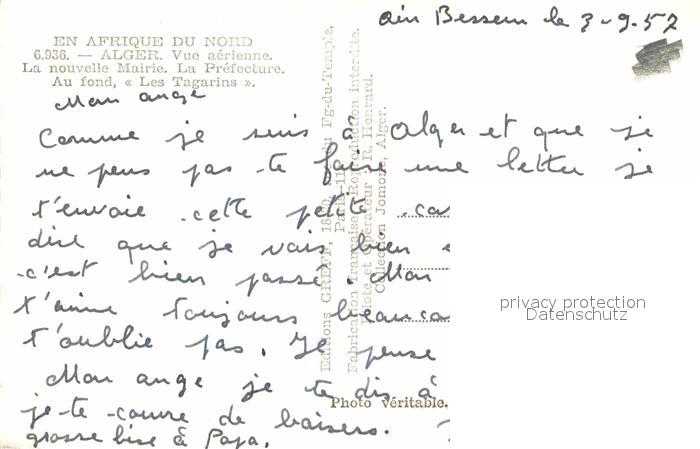 Ain Bessem le 3-9.52
EN AFRIQUE DU NORD
6.936. — ALGER. Vue aérienne.
La nouvelle Mairie. La Préfecture.
Au fond, « Les Tagarins ».
Mon ange
Comme je suis à Alger et que je
ne peus pas te faire une letter je
t'envoie cette petite ca
dire que je vais bien e
c'est bien passé. Mon
t'aime toujours beauco
t'oublie pas. Je pense
Mon ange je te dis à
je te couvre de baisers.
grosse bise à Papa.
Editions GREFF, Rue du Fg-du-Temple,
Paris-11
Fabrication française. Reproduction interdite.
Photo et Opérateur : R. Henrard.
Collection Jomone, Alger.
Photo véritable.
privacy protection
Datenschutz